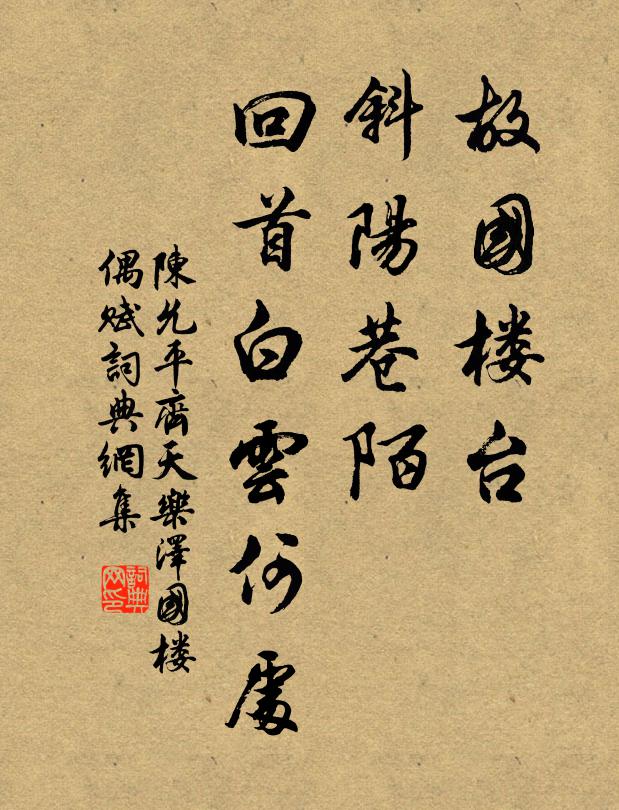 故國楼台
斜陽巷陌
回首白雲何處
陳允平齊天樂澤國楼
偶赋詞典網集
詞典
网印